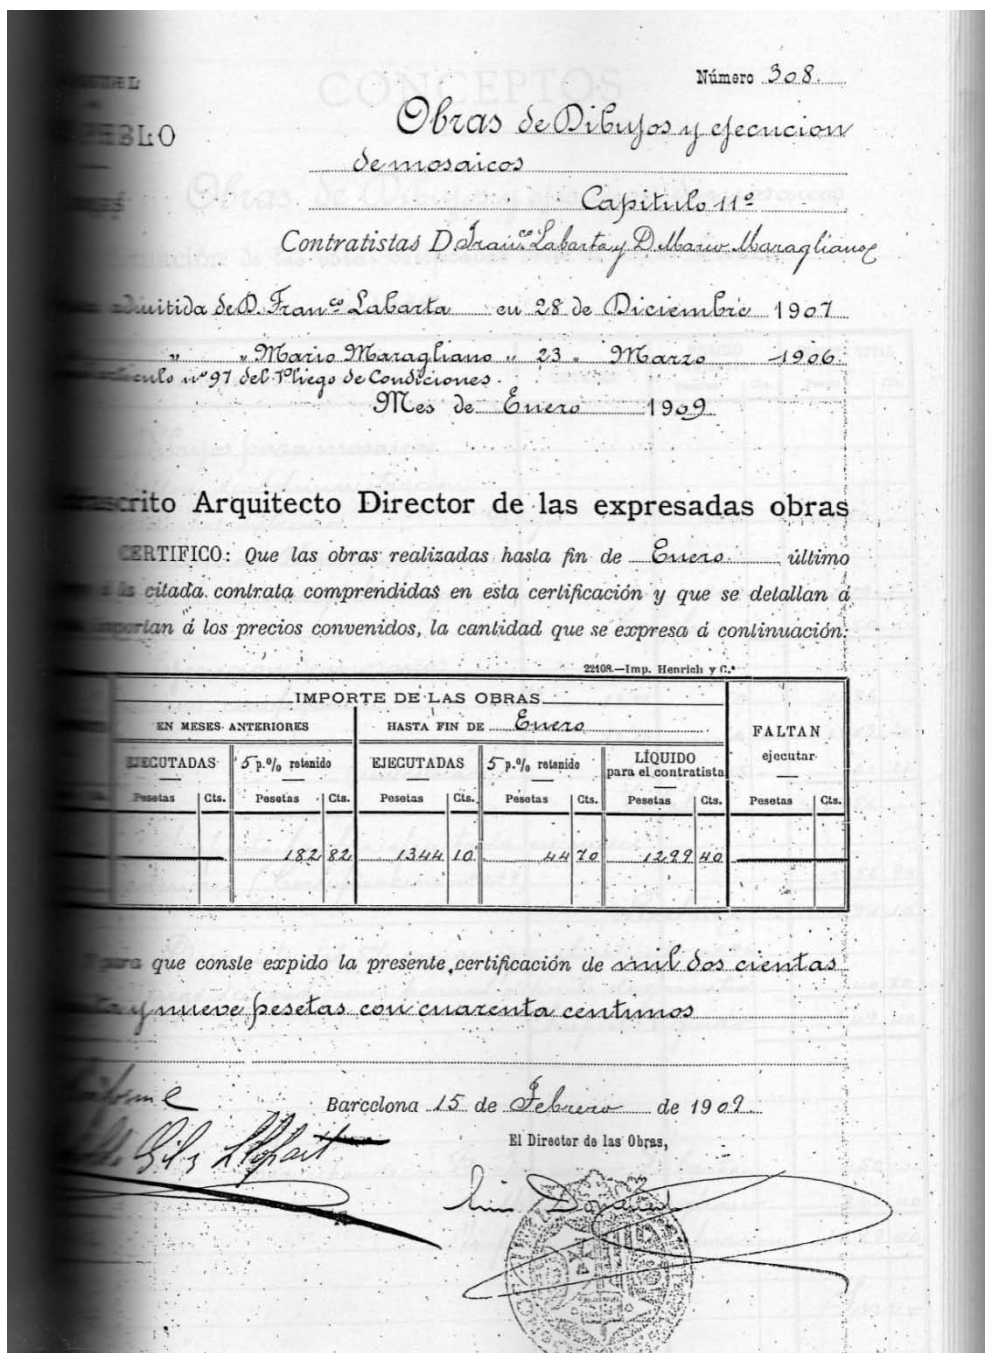 Número 308.
PUEBLO
Obras de Dibujos y ejecucion
de mosaicos
Capitulo 11º
Contratistas D. Franco. Labarta y D. Mario Maragliano
admitida de D. Franco. Labarta en 28 de Diciembre 1907
" " Mario Maragliano " 23 " Marzo 1906.
articulo nº 97 del Pliego de Condiciones.
Mes de Enero 1909
Arquitecto Director de las expresadas obras
CERTIFICO: Que las obras realizadas hasta fin de Enero último
á la citada contrata comprendidas en esta certificación y que se detallan á
importan á los precios convenidos, la cantidad que se expresa á continuación:
22108.—Imp. Henrich y C.ª
IMPORTE DE LAS OBRAS
EN MESES ANTERIORES HASTA FIN DE Enero FALTAN
EJECUTADAS 5 p.% retenido EJECUTADAS 5 p.% retenido LÍQUIDO para el contratista ejecutar
Pesetas Cts. Pesetas Cts. Pesetas Cts. Pesetas Cts. Pesetas Cts. Pesetas Cts.
182 82 1344 10 44 70 1299 40
para que conste expido la presente certificación de mil dos cientas
y nueve pesetas con cuarenta centimos
Barcelona 15 de Febrero de 1909.
El Director de las Obras,